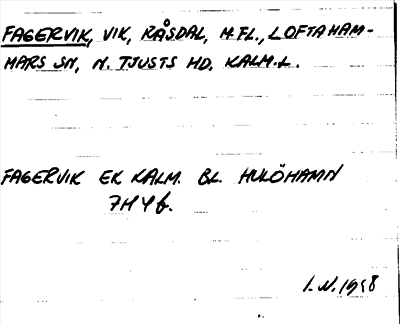 FAGERVIK, VIK, RÅSDAL, M.FL., LOFTAHAM-
MARS SN, N. TJUSTS HD, KALM.L.
FAGERVIK EK KALM. BL. HULÖHAMN
7H4b.
I.N.1958